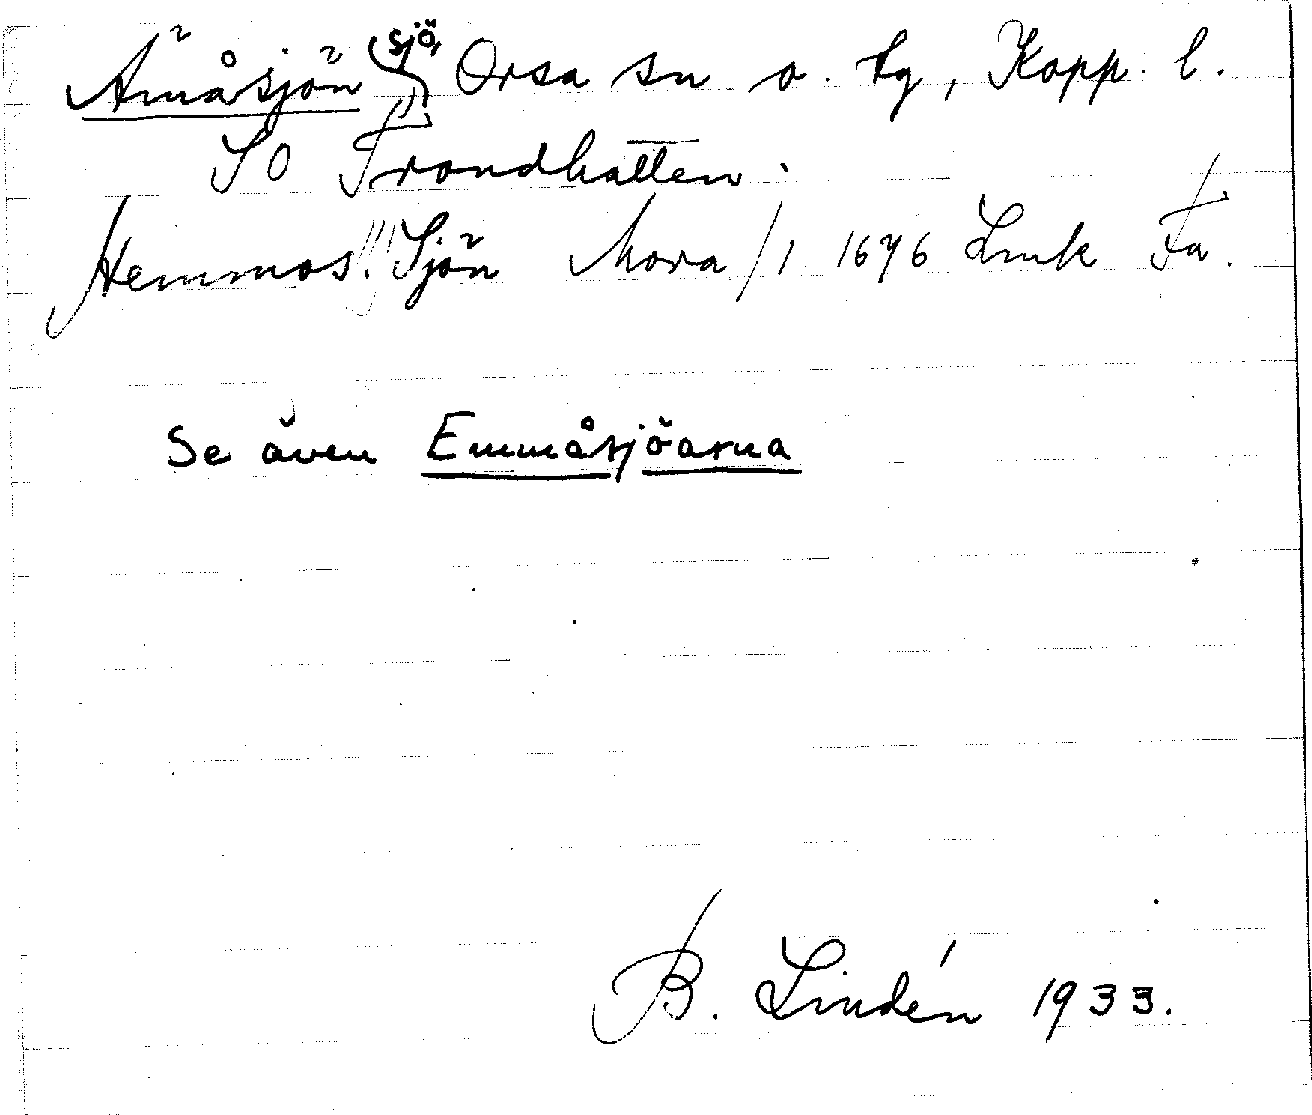 Ämåsjön sjö, Orsa sn o. tg, Kopp. l.
SO Trondhatten.
Hemmos!! Sjön Mora /1 1676 Lmk Fa.
Se även Emmåsjöarna
B. Lindén 1933.